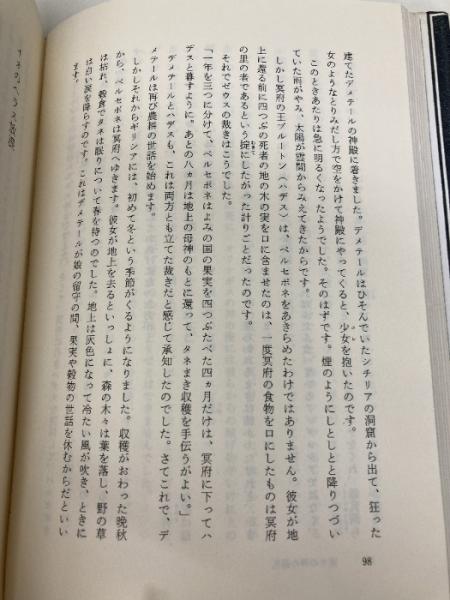 建てたデメテールの神殿に着きました。デメテールはひそんでいたシチリアの洞窟から出て、狂った
女のようなとりみだし方で空をかけて神殿にやってくると、少女を抱いたのです。
このときあたりは急に明るくなったようでした。そのはずです。煙のようにしとしとと降りつづい
ていた雨がやみ、太陽が雲間からみえてきたからです。
しかし冥府の王プルートン（ハデス）は、ペルセポネをあきらめたわけではありません。彼女が地
上に還る前に四つぶの死者の地の木の実を口に含ませたのは、一度冥府の食物を口にしたものは冥府
の里の者であるという掟にしたがった計りごとだったのです。
それでゼウスの裁きはこうでした。
「一年を三つに分けて、ペルセポネはよみの国の果実を四つぶたべた四ヵ月だけは、冥府に下ってハ
デスと暮すように。あとの八ヵ月は地上の母神のもとに還って、タネまき収穫を手伝うがよい。」
デメテールとハデスも、これは両方とも立てた裁きだと感じて承知したのでした。さてこれで、デ
メテールは再び農耕の世話を始めます。
しかしそれからギリシアには、初めて冬という季節がくるようになりました。収穫がおわった晩秋
から、ペルセポネは冥府へゆきます。彼女が地上を去るといっしょに、森の木々は葉を落し、野の草
は枯れ、穀倉でタネは眠りについて春を待つのでした。地上は灰色になって冷たい風が吹き、ときに
は白い涙を降らすのです。これはデメテールが娘の留守の間、果実や穀物の世話を休むからだといい
ます。
98